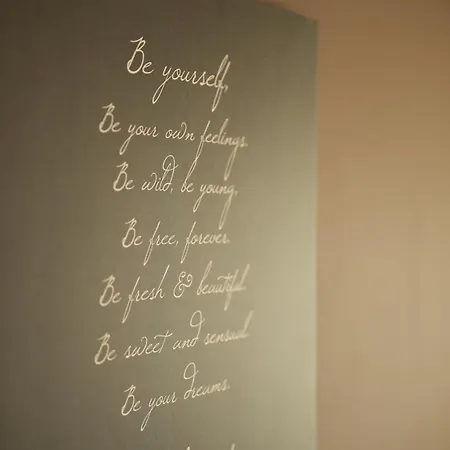 Be yourself,
Be your own feelings.
Be wild, be young,
Be free, forever.
Be fresh & beautiful
Be sweet and sensual
Be your dreams